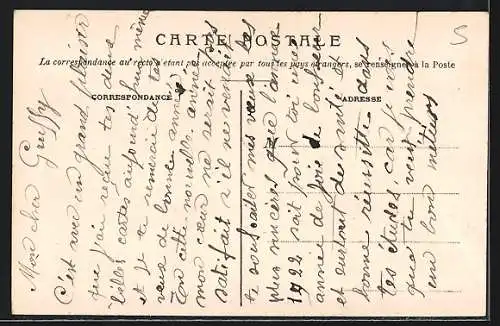 CARTE POSTALE
La correspondance au recto n'étant pas acceptée par tous les pays étrangers, se renseigner à la Poste
CORRESPONDANCE
ADRESSE
S
Mon cher
C'est avec un grand plaisir
que j'ai reçue tes deux
belles cartes aujourd'hui même
et je te remercie de tes
vœux de bonne année
En cette nouvelle année
mon cœur ne serait pas
satisfait s'il ne venait
te souhaiter mes vœux les
plus sincères que l'année
1922 soit pour toi une
année de joie de bonheur
et surtout de santé
bonne réussite dans
tes études, car je sais
que tu veux prendre
un bon métier